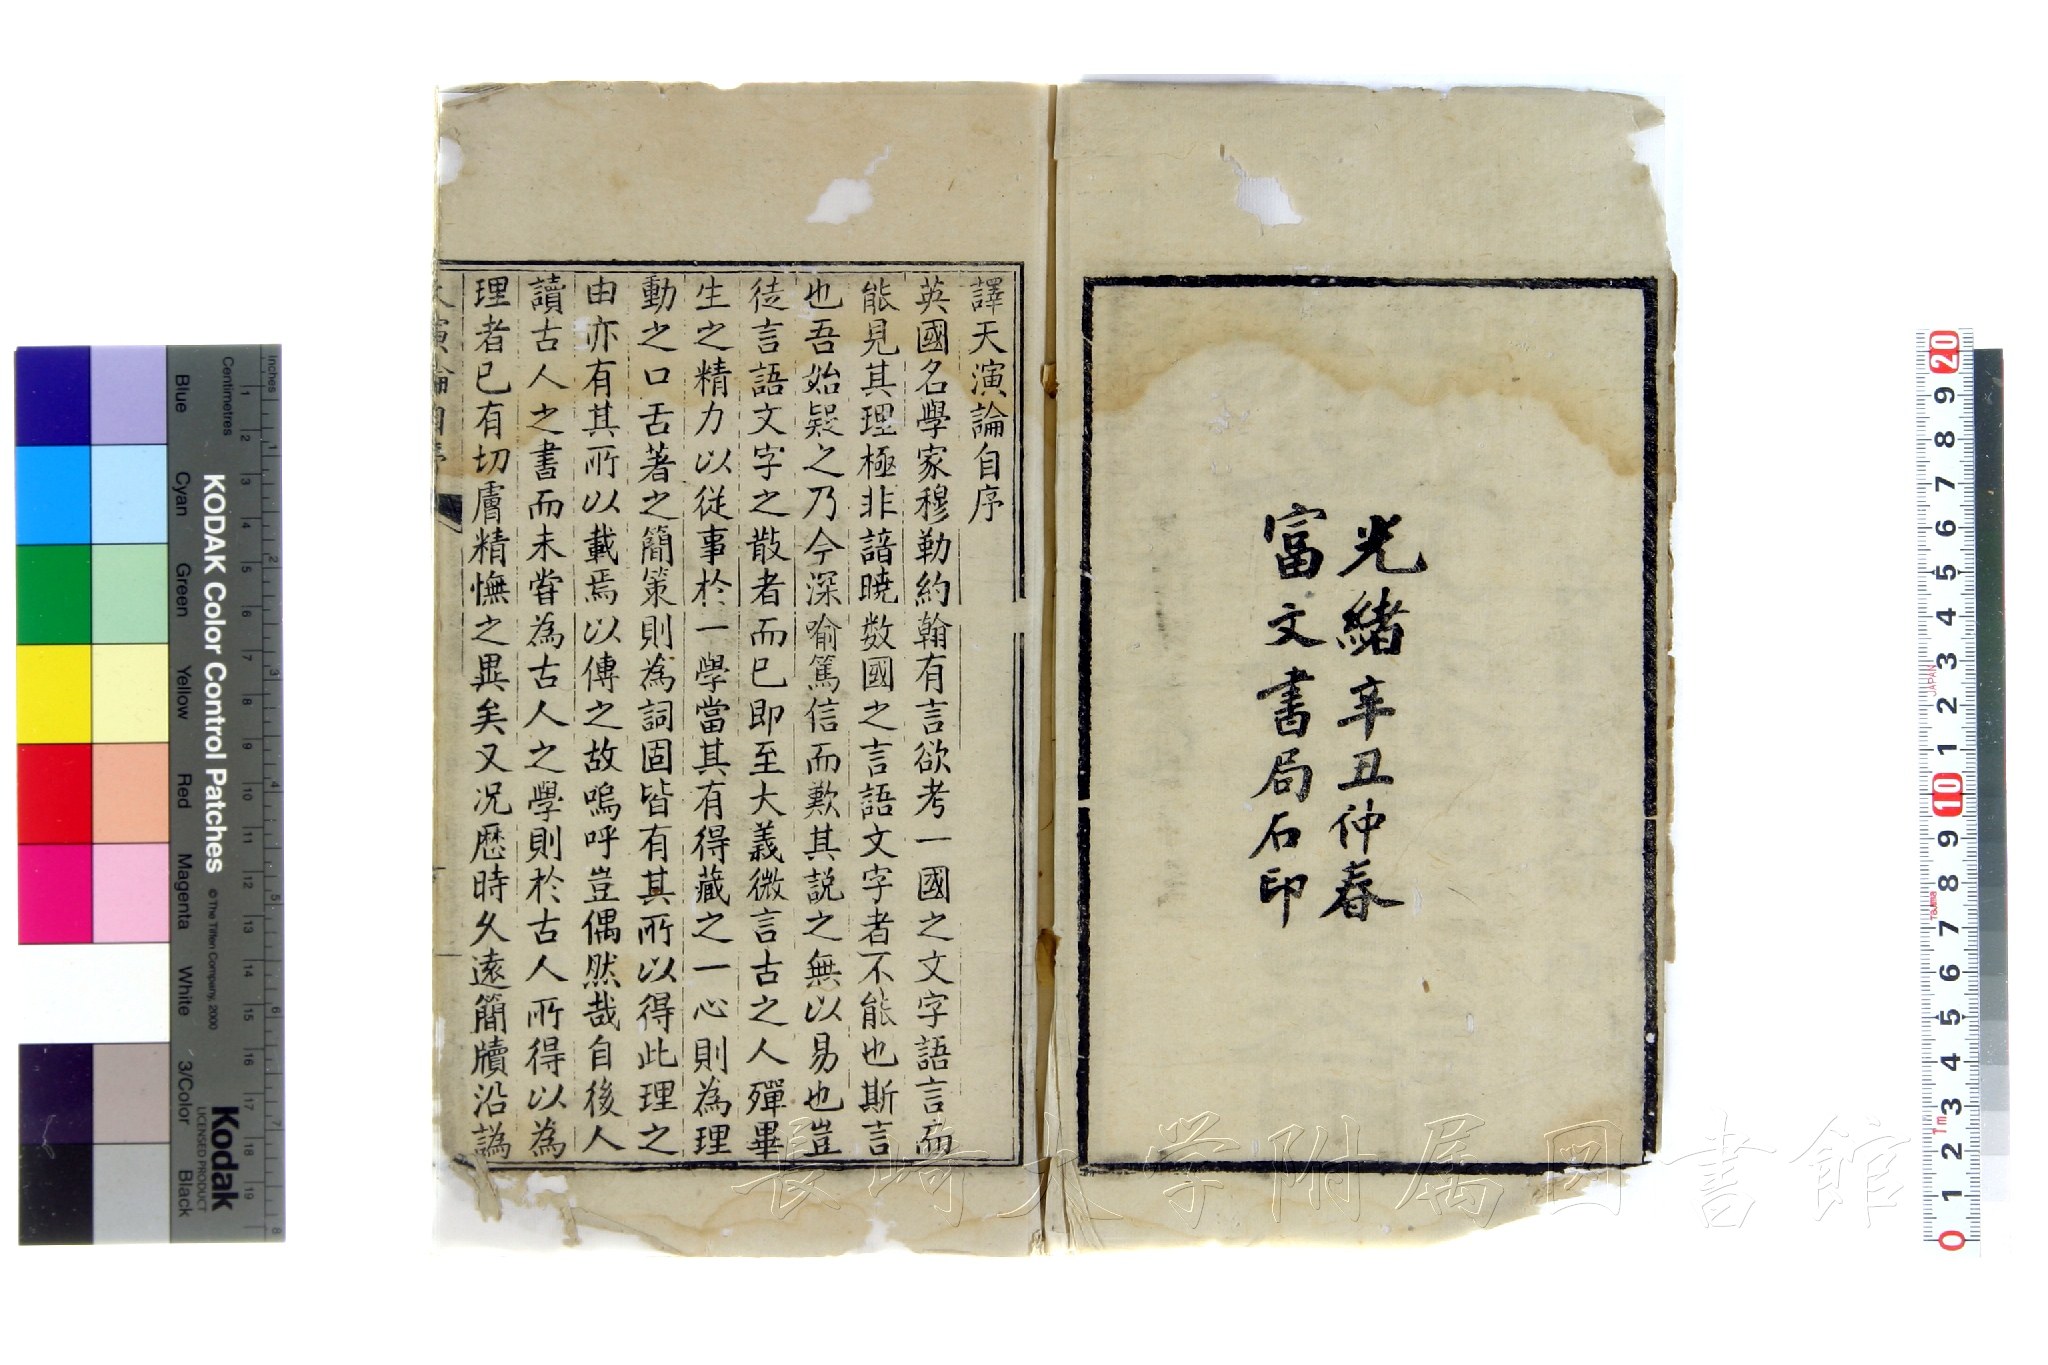 光緒辛丑仲春
富文書局石印
譯天演論自序
英國名學家穆勒約翰有言欲考一國之文字語言而
能見其理極非諳曉数國之言語文字者不能也斯言
也吾始疑之乃今深喻篤信而歎其説之無以易也豈
徒言語文字之散者而已即至大義微言古之人殫畢
生之精力以從事於一學當其有得藏之一心則為理
動之口舌著之簡策則為詞固皆有其所以得此理之
由亦有其所以載焉以傳之故嗚呼豈偶然哉自後人
讀古人之書而未嘗為古人之學則於古人所得以為
理者已有切膚精憮之異矣又況歷時久遠簡牘沿譌
演論自序
長崎大学附属図書館
KODAK Color Control Patches
© The Tiffen Company, 2000
Kodak
LICENSED PRODUCT
Inches
Centimetres
1 2 3 4 5 6 7 8 9 10 11 12 13 14 15 16 17 18 19
1 2 3 4 5 6 7 8
Blue
Cyan
Green
Yellow
Red
Magenta
White
3/Color
Black
20 9 8 7 6 5 4 3 2 1 10 9 8 7 6 5 4 3 2 1 0
JAPAN
Tajima
1m